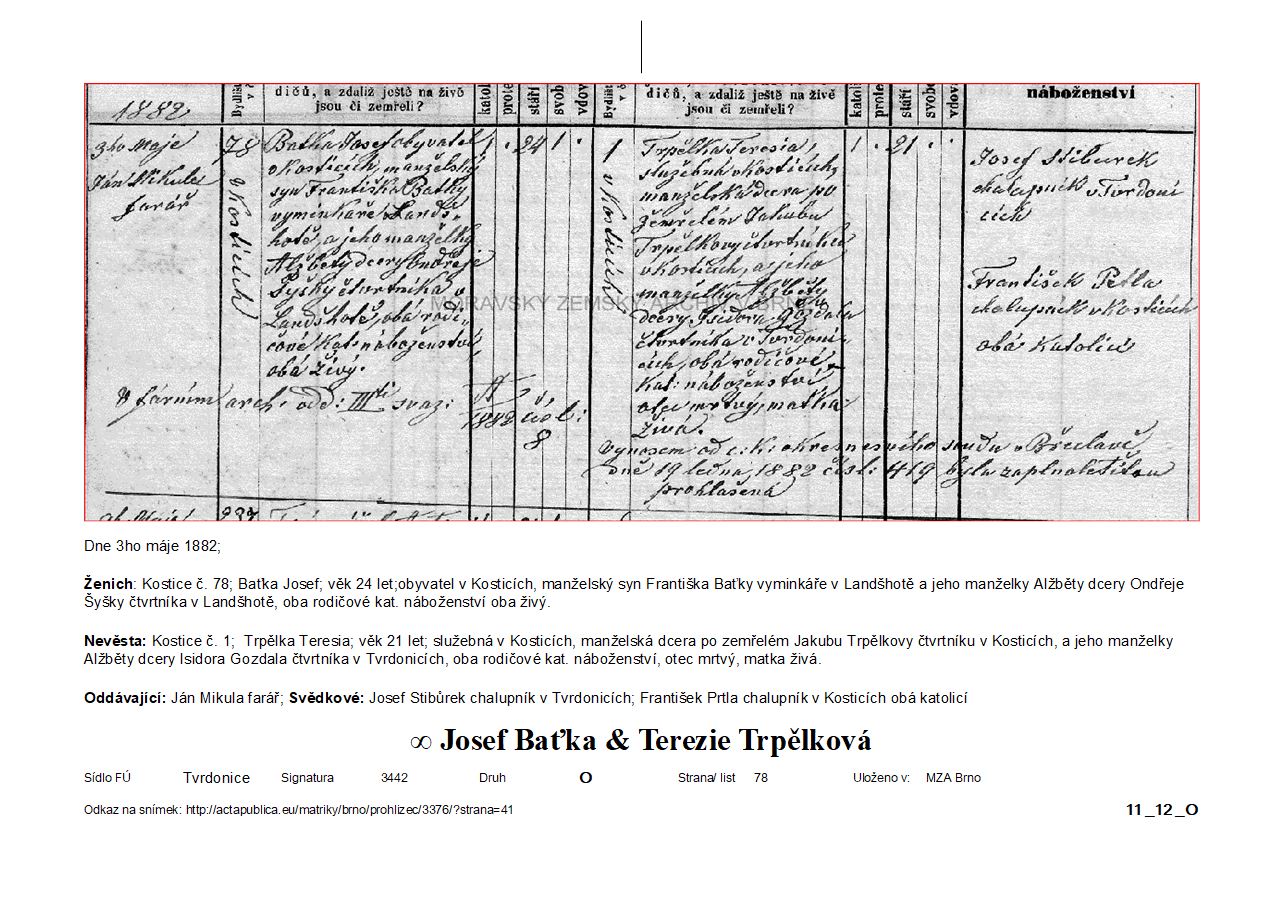 1882
Bydliš
v č
dičů, a zdaliž ještě na živě
jsou či zemřeli?
katol
prote
stáří
svob
vdov
Bydliš
v č
dičů, a zdaliž ještě na živě
jsou či zemřeli?
katol
prote
stáří
svob
vdov
náboženství
3ho Máje
Ján Mikula
farář
78
v Kosticích
Baťka Josef obyvatel
v Kosticích, manželský
syn Františka Baťky
vyminkáře v Lands-
hotě, a jeho manželky
Alžběty dcery Ondřeje
Šyšky čtvrtníka v
Landshotě, obá rodi-
čové kat. náboženství
obá živý.
1 . 24 1 .
1
v Kosticích
Trpělka Teresia,
služebná v Kosticích,
manželská dcera po
zemřelém Jakubu
Trpělkovy čtvrtníku
v Kosticích, a jeho
manželky Alžběty
dcery Isidora Gozdala
čtvrtníka v Tvrdoni-
cích, obá rodičové
kat: náboženství
otec mrtvý, matka
živá.
1 . 21 . .
Josef Stiburek
chalupník v Tvrdoni
cích
František Prtla
chalupník v Kosticích
obá Katolíci
V fárním arch: odd: III svaz:
1882 čís:
8
Výnosem od c. k. okresního soudu v Břeclavě
dně 19 ledna 1882 čísl: 419 byla zaplnoletilou
prohlašená
MORAVSKÝ ZEMSKÝ ARCHIV V BRNĚ
Dne 3ho máje 1882;
Ženich: Kostice č. 78; Baťka Josef; věk 24 let;obyvatel v Kosticích, manželský syn Františka Baťky vyminkáře v Landšhotě a jeho manželky Alžběty dcery Ondřeje
Šyšky čtvrtníka v Landšhotě, oba rodičové kat. náboženství oba živý.
Nevěsta: Kostice č. 1; Trpělka Teresia; věk 21 let; služebná v Kosticích, manželská dcera po zemřelém Jakubu Trpělkovy čtvrtníku v Kosticích, a jeho manželky
Alžběty dcery Isidora Gozdala čtvrtníka v Tvrdonicích, oba rodičové kat. náboženství, otec mrtvý, matka živá.
Oddávající: Ján Mikula farář; Svědkové: Josef Stibůrek chalupník v Tvrdonicích; František Prtla chalupník v Kosticích obá katolicí
∞ Josef Baťka & Terezie Trpělková
Sídlo FÚ Tvrdonice Signatura 3442 Druh O Strana/ list 78 Uloženo v: MZA Brno
Odkaz na snímek: http://actapublica.eu/matriky/brno/prohlizec/3376/?strana=41
11_12_O